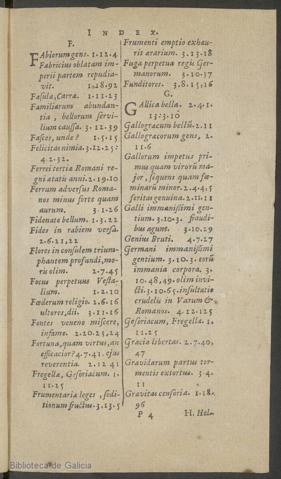 INDEX.
F.
Fabiorum gens. 1.12.4
Fabricius oblatam im-
perii partem repudia-
vit. 1.18.92
Fæsula, Carræ. 1.11.23
Familiarum abundan-
tia, bellorum servi-
lium caussa. 3.12.39
Fasces, unde? 1.5.15
Felicitas nimia. 3.12.25:
4.2.32.
Ferrei tertia Romani re-
gni ætatis anni. 2.19.10
Ferrum adversus Roma-
nos minus forte quam
aurum. 3.1.26
Fidenate bellum. 1.3.22
Fides in rabiem versa.
2.6.11,22
Flores in consulem trium-
phantem profundi, mo-
ris olim. 2.7.45
Focus perpetuus Vesta-
lium. 1.2.10
Fœderum religio. 2.6.16
ultores, dii. 3.11.16
Fontes veneno miscere,
infame. 2.20.23,24
Fortuna, quam virtus, an
efficacior? 4.7.41. ejus
reverentia. 2.12.41
Fregellæ, Gesoriacum. 1.
11.25
Frumentaria leges, sedi-
tionum fructus. 3.13.5
Frumenti emptio exhau-
rit ærarium. 3.13.18
Fuga perpetua regis Ger-
manorum. 3.10.17
Funditores. 3.8.15,16
G.
Gallica bella. 2.4.1.
13: 3.10
Gallogræcum bellũ. 2.11
Gallogræcorum gens, 2.
11.6
Gallorum impetus pri-
mus quam virorũ ma-
jor, sequens quam fœ-
minarũ minor. 2.4.5
feritas genuina. 2.11.18
Galli immanissimi gen-
tium. 3.10.3. fraudi-
bus agunt. 3.10.29
Genius Bruti. 4.7.27
Germani immanissimi
gentium. 3.10.3. eorũ
immania corpora, 3.
10.48,49. olim invi-
cti. 3.10.65. insultatio
crudelis in Varum &
Romanos. 4.12.125
Gesoriacum, Fregellæ. 1.
11.25
Græcia libertas. 2.7.40,
47
Gravidarum partus tor-
mentis extortus. 3.4.
11
Gravitas censoria. 1.18.
96
P 4 H. Hel-
Biblioteca de Galicia